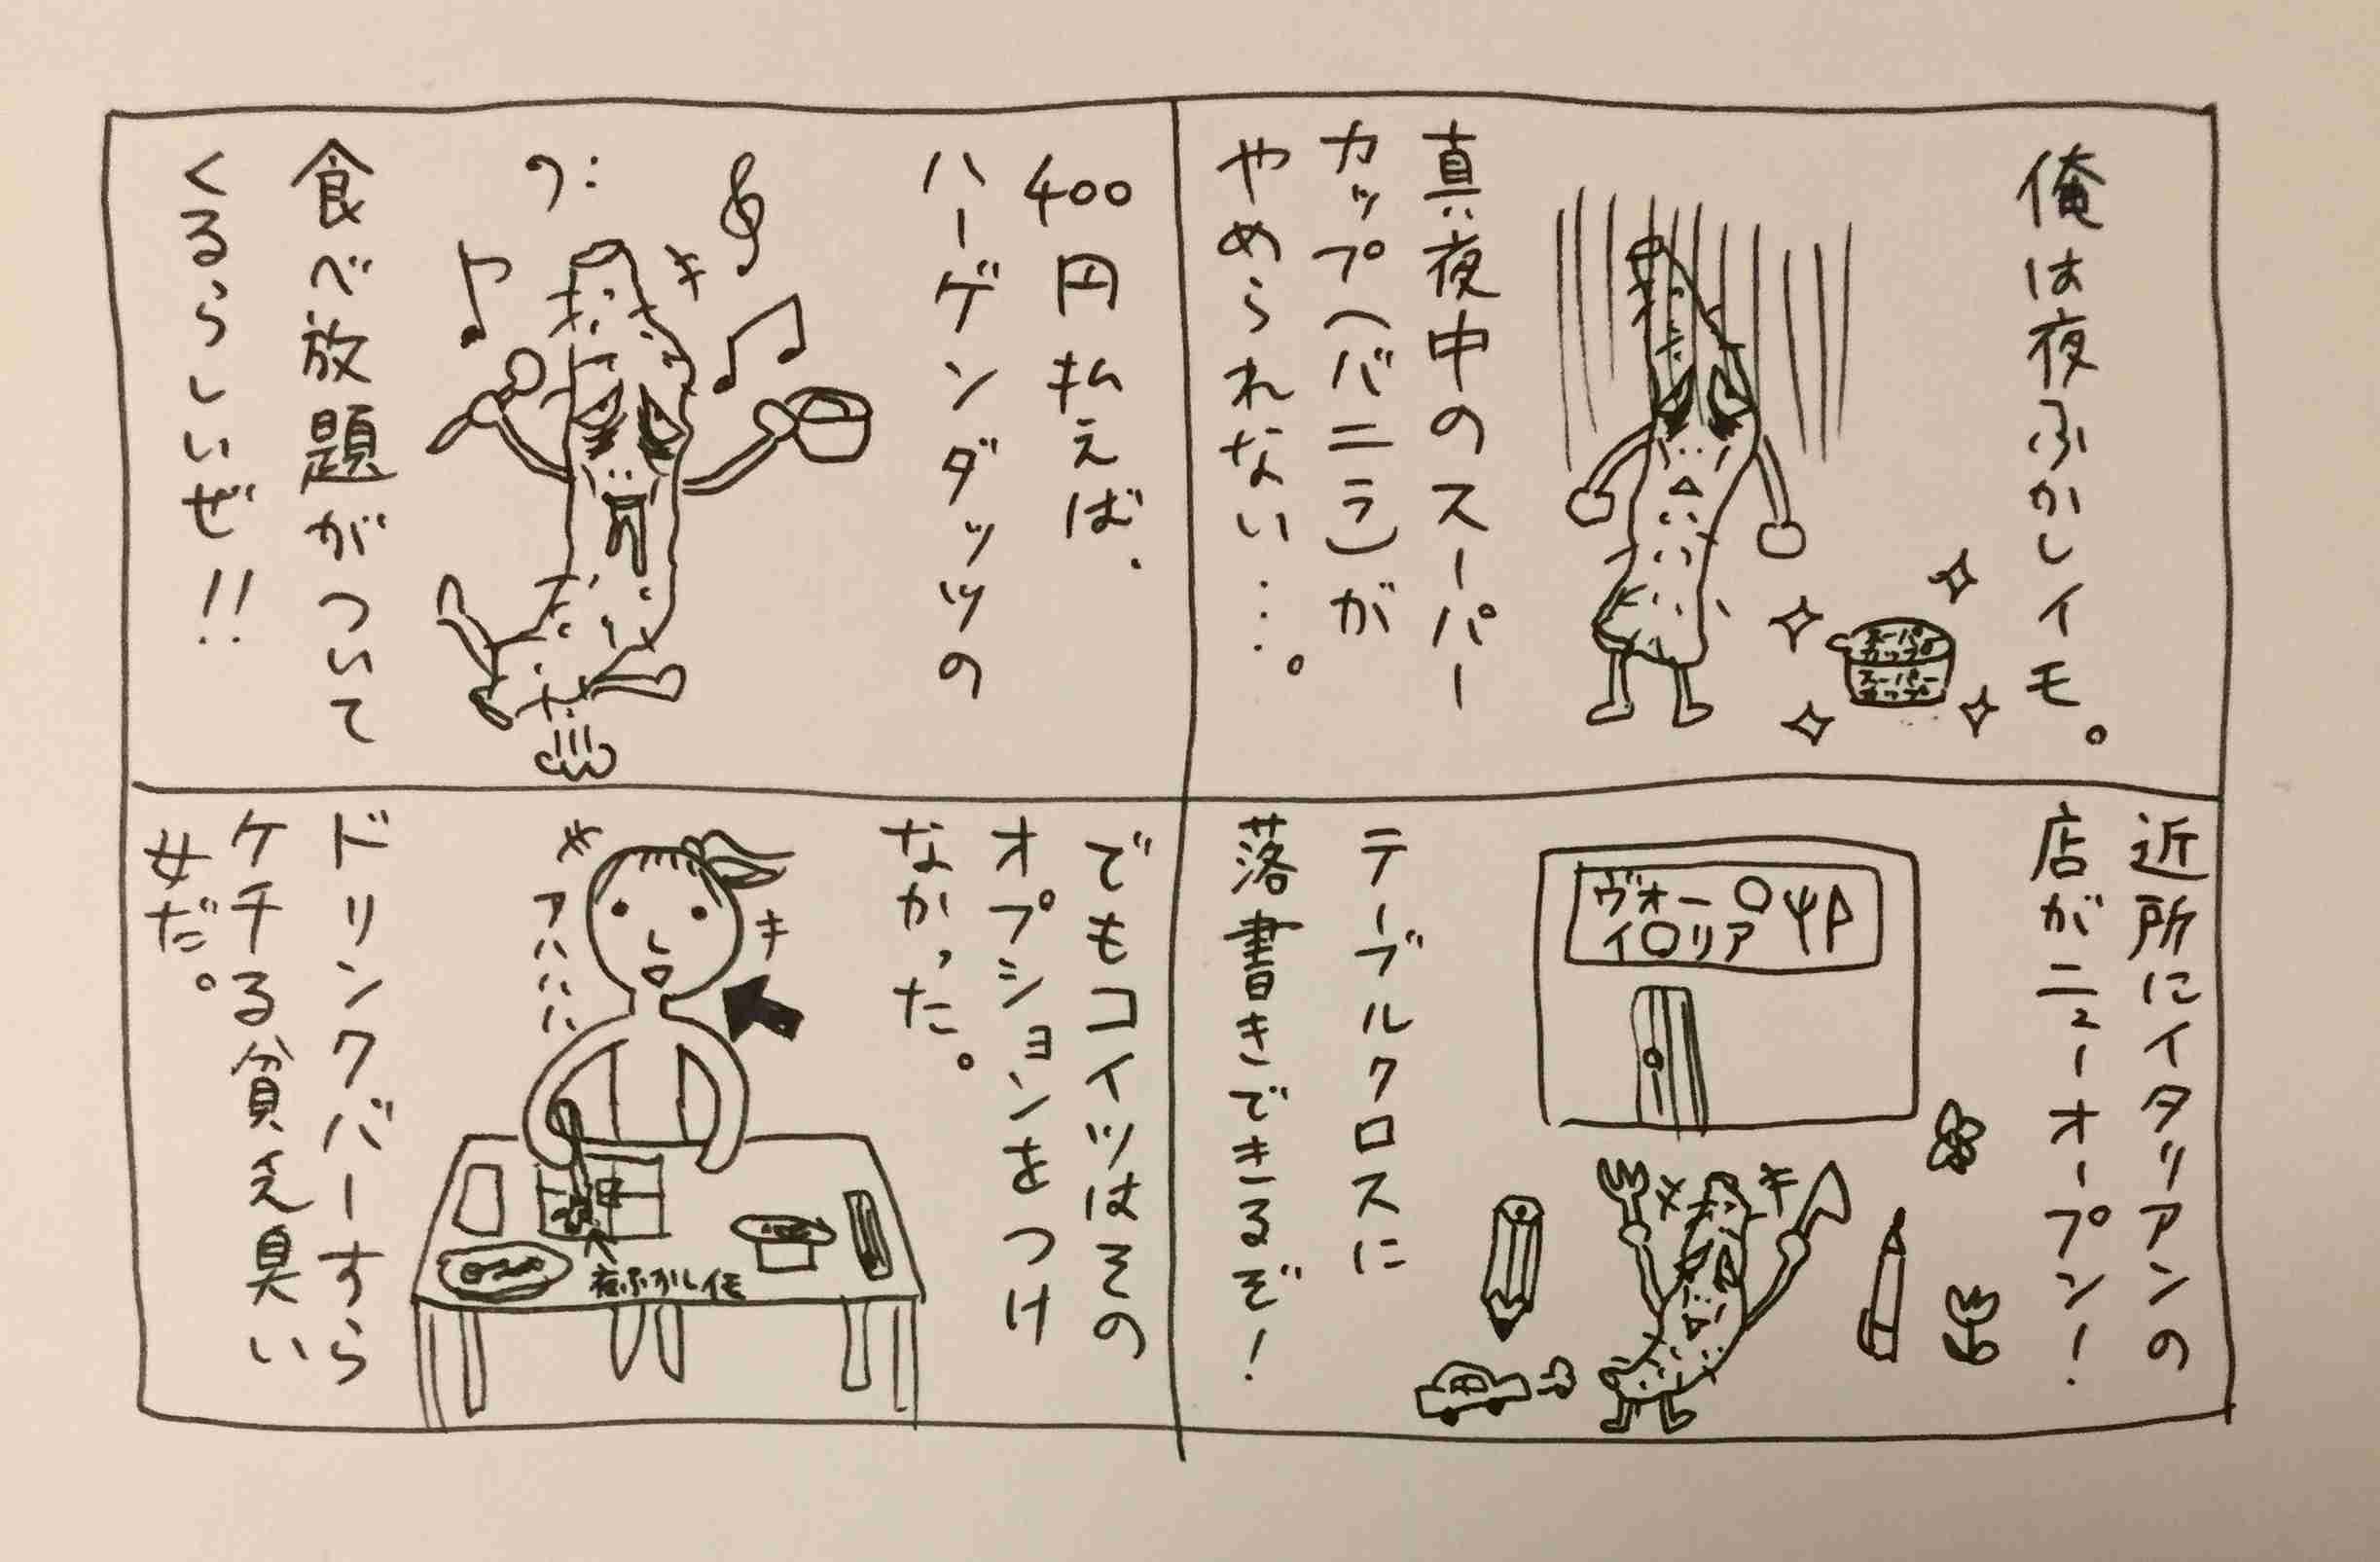 俺は夜ふかしイモ。
真夜中のスーパー
カップ(バニラ)が
やめられない…。
スーパー
カップ
スーパー
カップ
近所にイタリアンの
店がニューオープン!
ヴォーノ
イロリア
テーブルクロスに
落書きできるぞ!
400円払えば、
ハーゲンダッツの
食べ放題がついて
くるらしいぜ!!
でもコイツはその
オプションをつけ
なかった。
アハハハ
夜ふかしイモ
ドリンクバーすら
ケチる貧乏臭い
女だ。